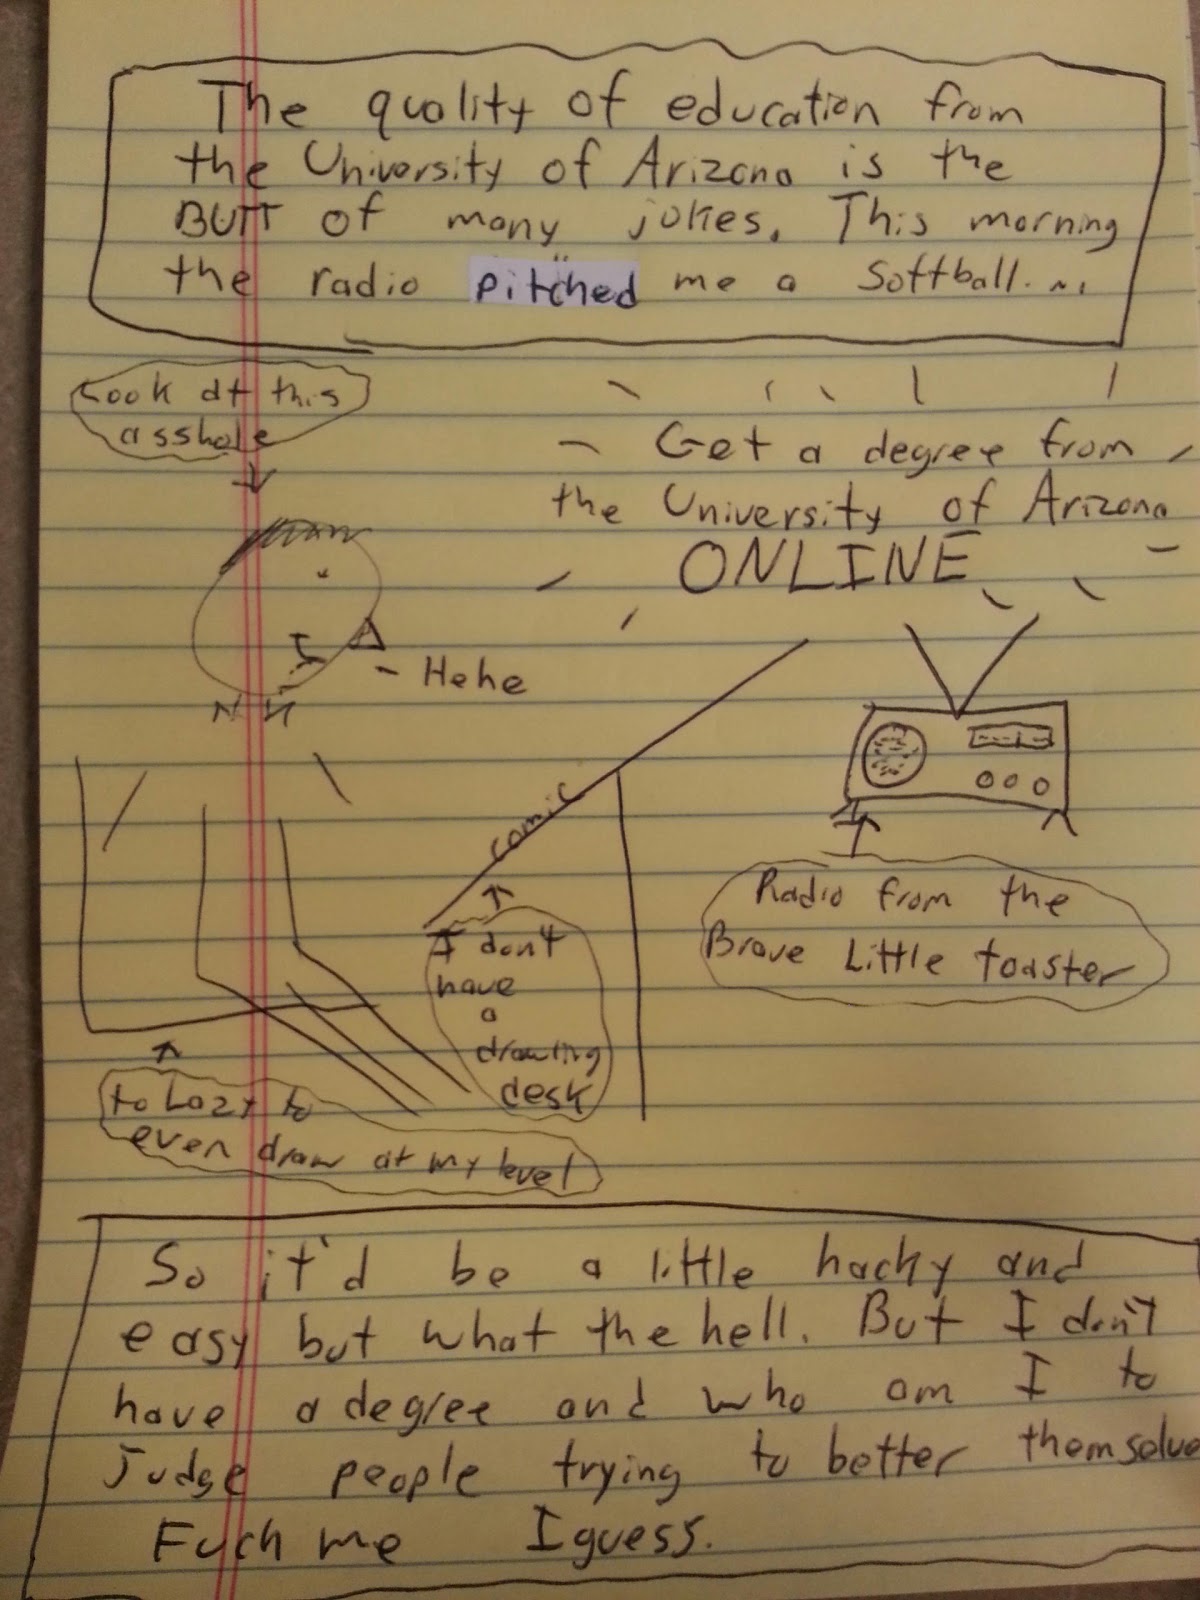 The quality of education from
the University of Arizona is the
BUTT of many jokes. This morning
the radio pitched me a softball...
Look at this
asshole
Get a degree from
the University of Arizona
ONLINE
- Hehe
comic
Radio from the
Brave Little toaster
I don't
have
a
drawing
desk
to Lazy to
even draw at my level
So it'd be a little hacky and
easy but what the hell. But I don't
have a degree and who am I to
Judge people trying to better themselve
Fuck me I guess.